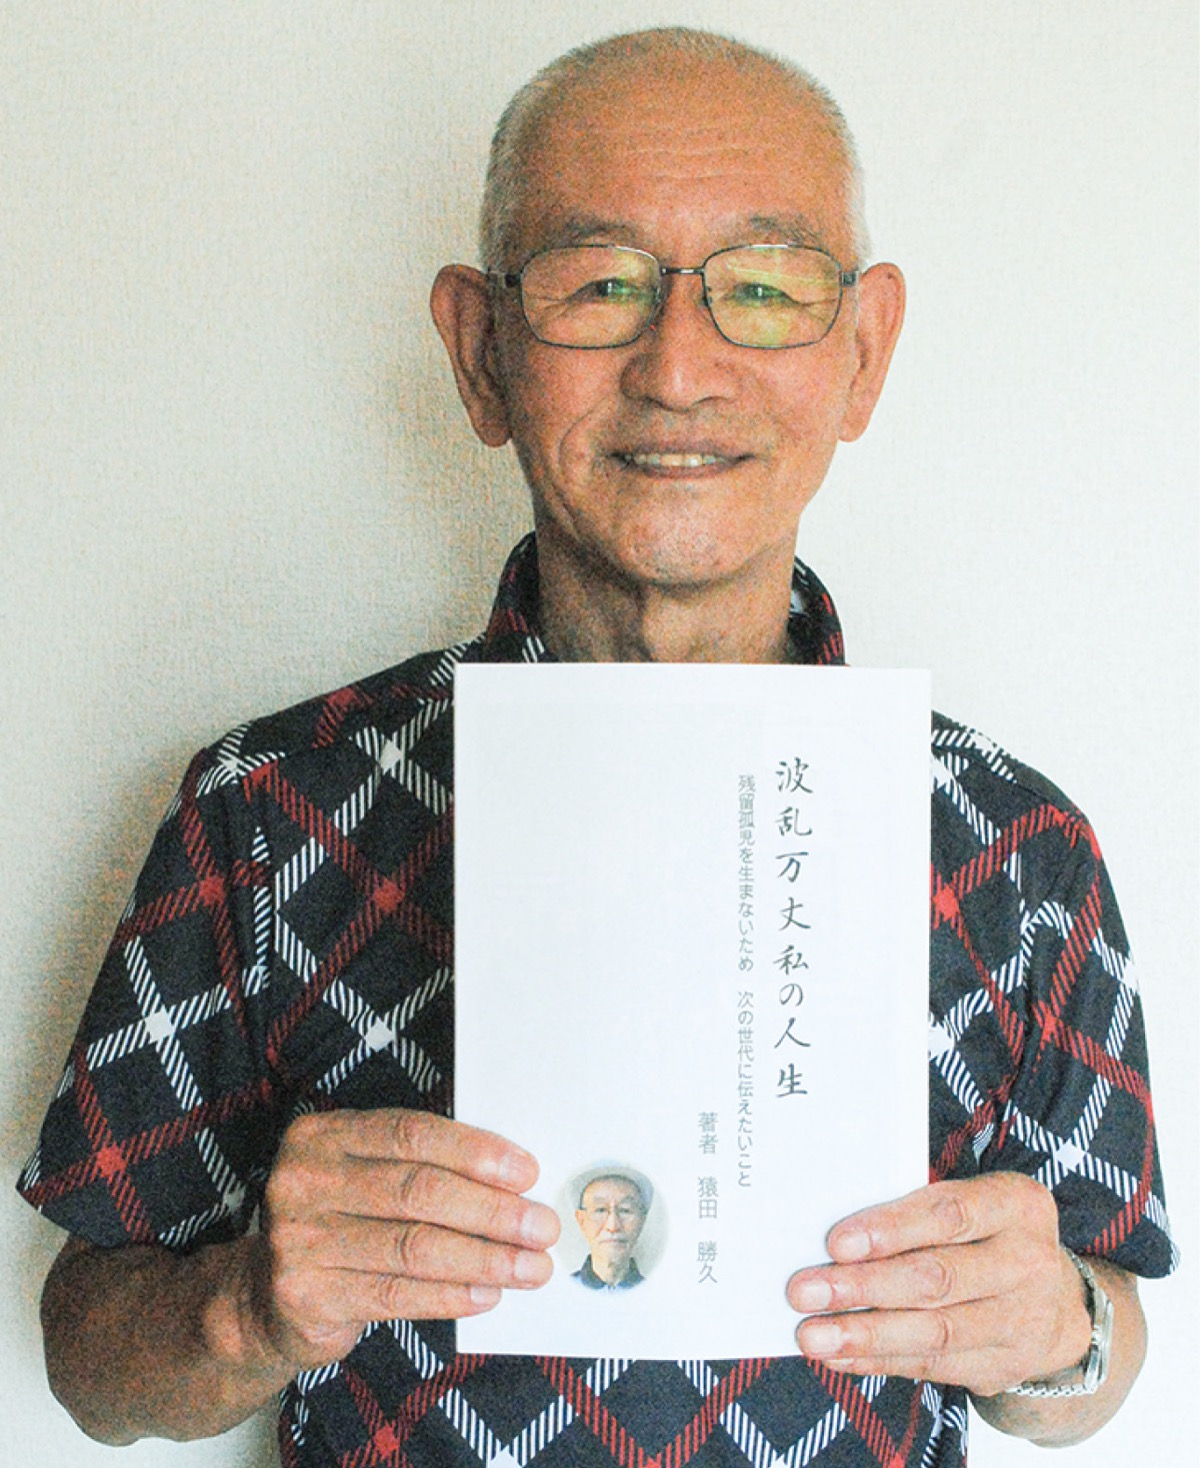 波乱万丈私の人生
残留孤児を生まないため　次の世代に伝えたいこと
著者　猿田　勝久